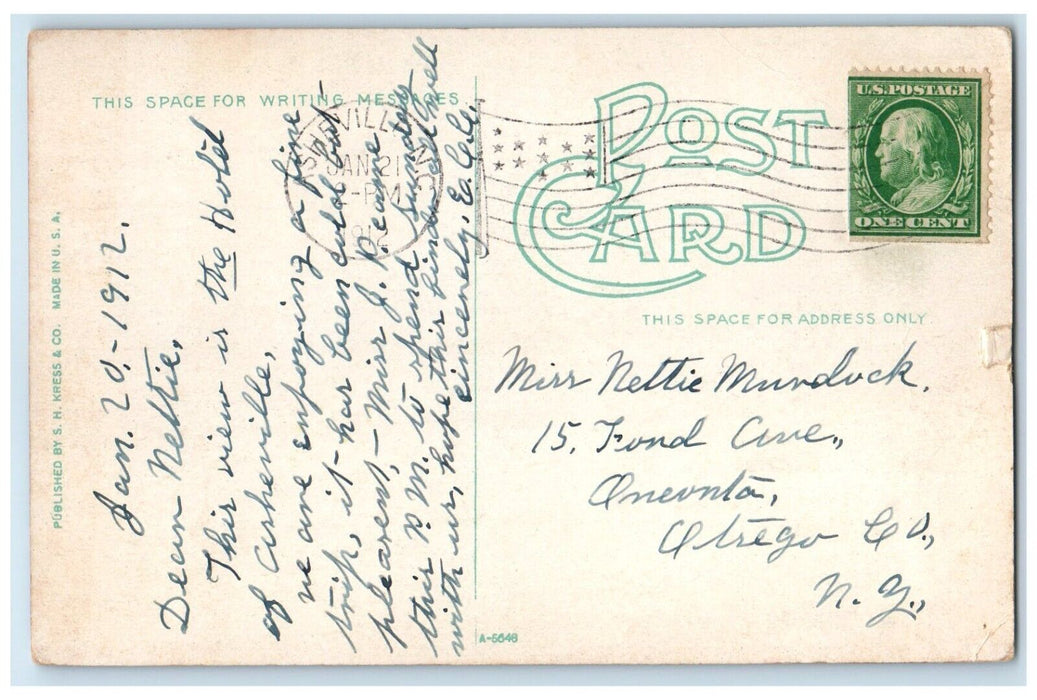 THIS SPACE FOR WRITING MESSAGES
POST
CARD
U.S. POSTAGE
ONE CENT
THIS SPACE FOR ADDRESS ONLY.
PUBLISHED BY S. H. KRESS & CO. MADE IN U. S. A.
JAN 21
-PM
1912
Jan. 20.-1912.
Dear Nettie,
This view is the Hotel
of Asheville,
we are enjoying a fine
trip, it-has been cold but-
pleasent,- Miss J. came
this P.M. to spend Sunday
with us, hope this finds well
sincerely, Ea. Cole,
Miss Nettie Murdock,
15, Fond Ave.,
Oneonta,
Otsego Co.,
N. Y.,
A-5646